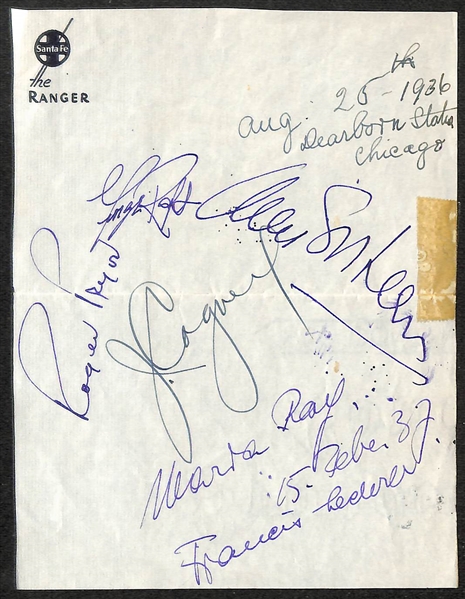 Santa Fe
the
RANGER
Aug. 25th - 1936
Dearborn Station
Chicago
George Raft
Roger Pryor
J. Cagney
Maria Ray
15. Feber. 37.
Francis Lederer